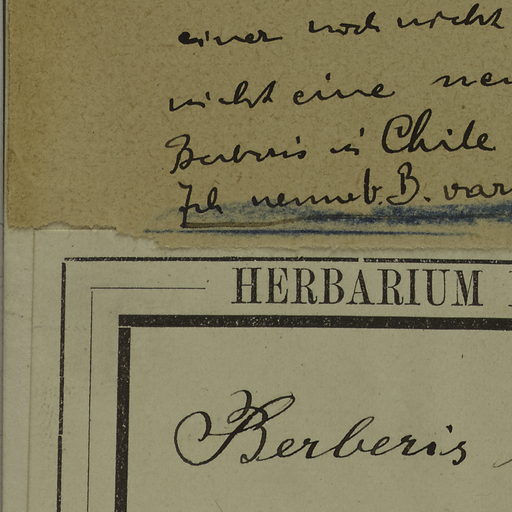 einer noch nicht
nicht eine neu
Berberis in Chile
Ich nenne B. var
HERBARIUM
Berberis